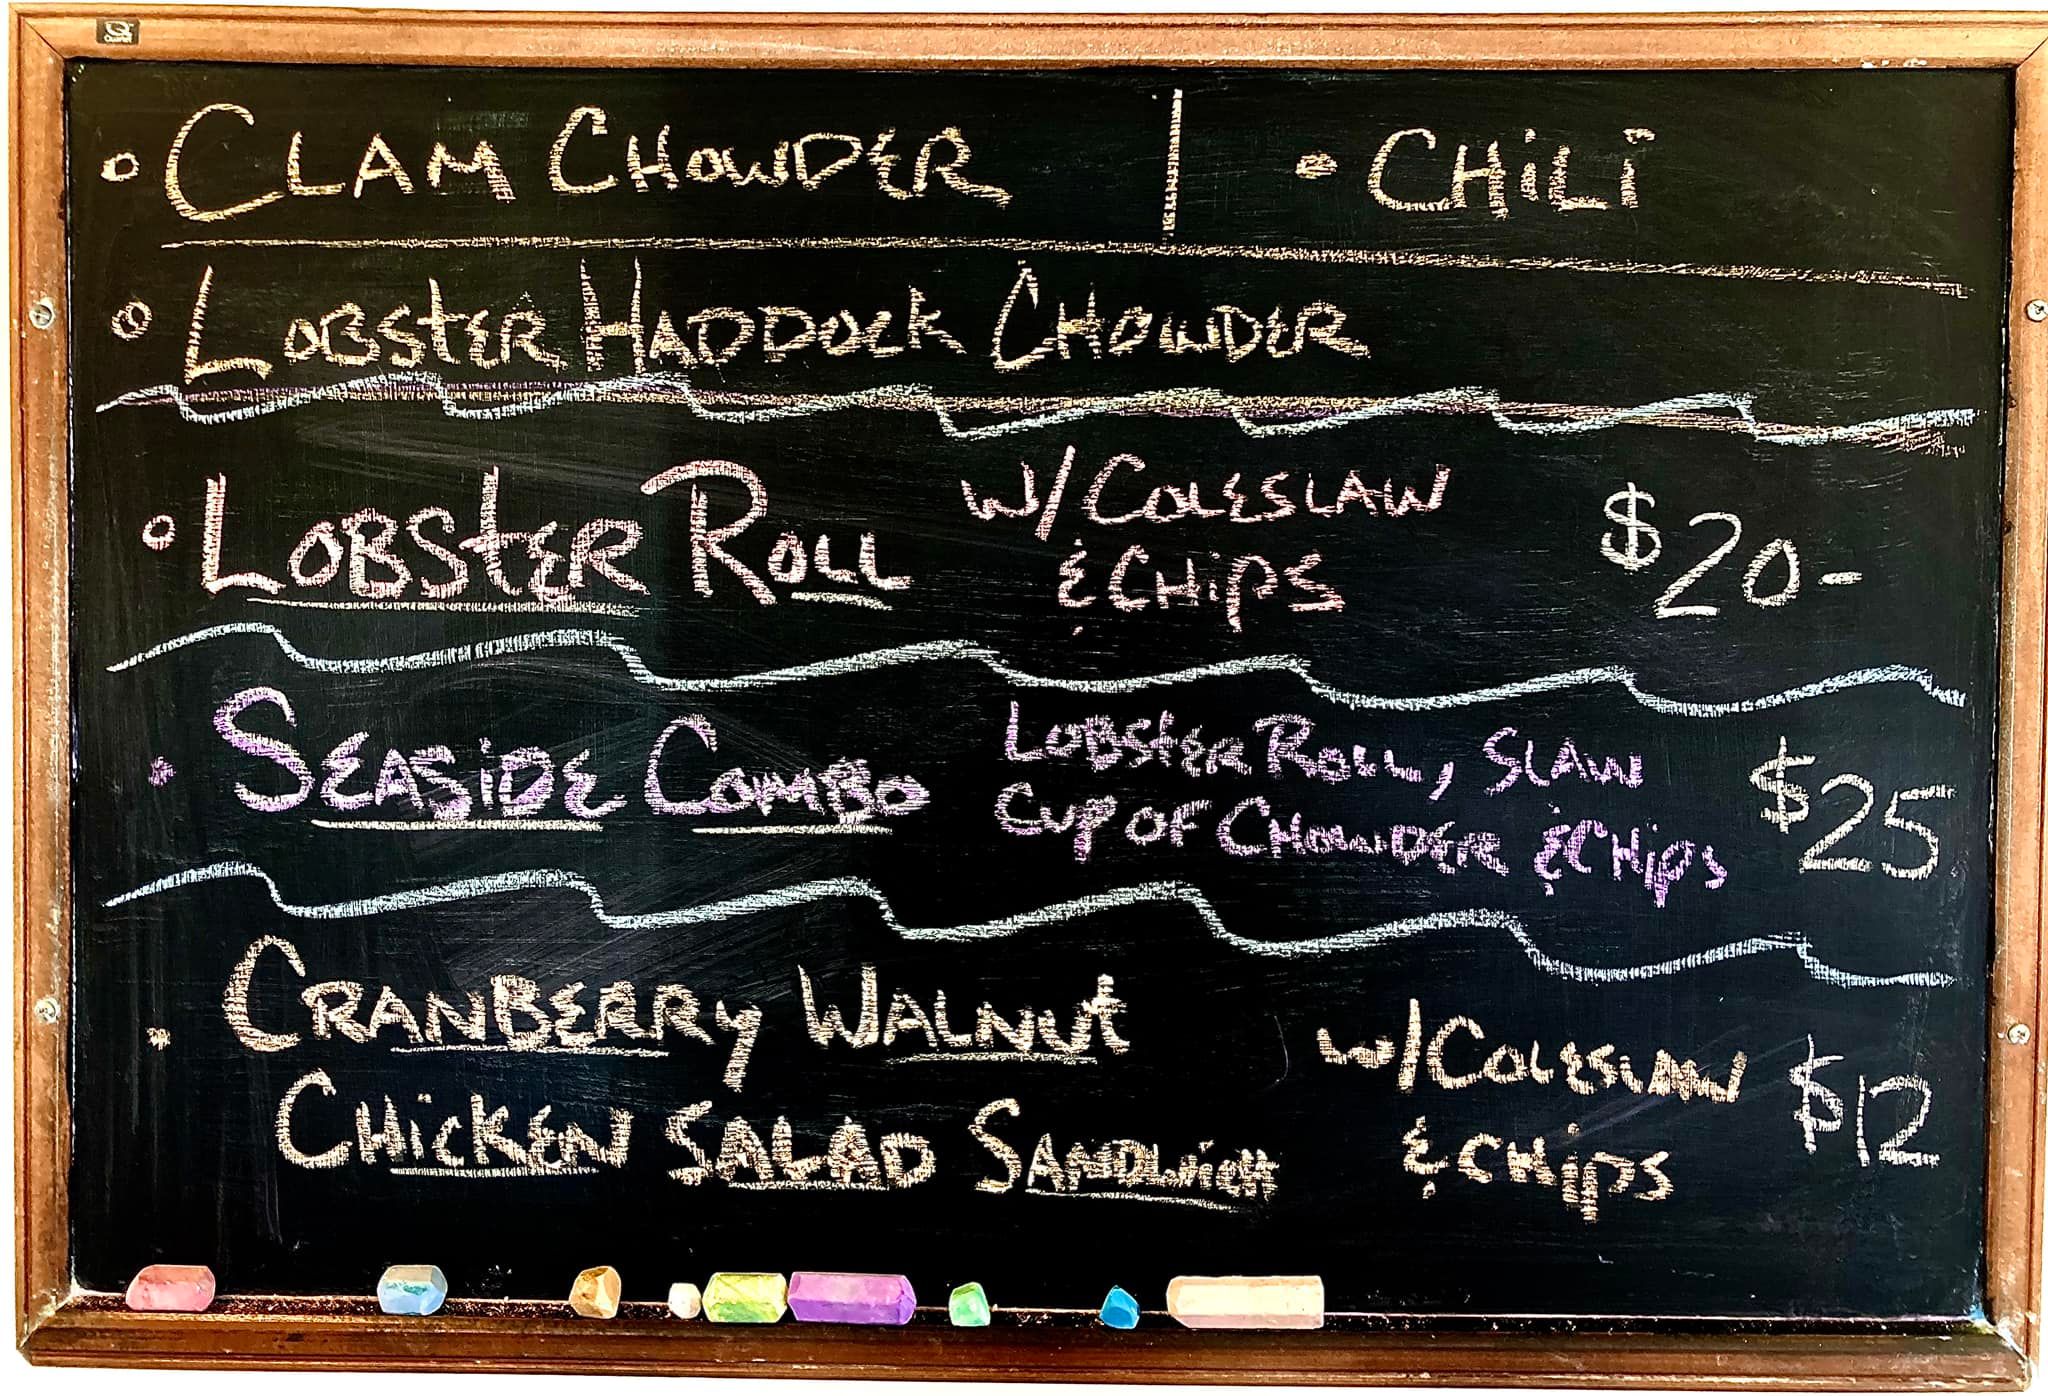 • CLAM CHOWDER | • CHiLi
• LOBStER HADDOCK CHOWDER
• LOBStER ROLL W/COLESLAW & CHiPS $20-
• SEASiDE COMBO LOBStER ROLL, SLAW CUP OF CHOWDER & CHips $25
• CRANBERRy WALNUt
CHicKEN SALAD SANDWicH W/COLESLAW & CHiPS $12
Quartet